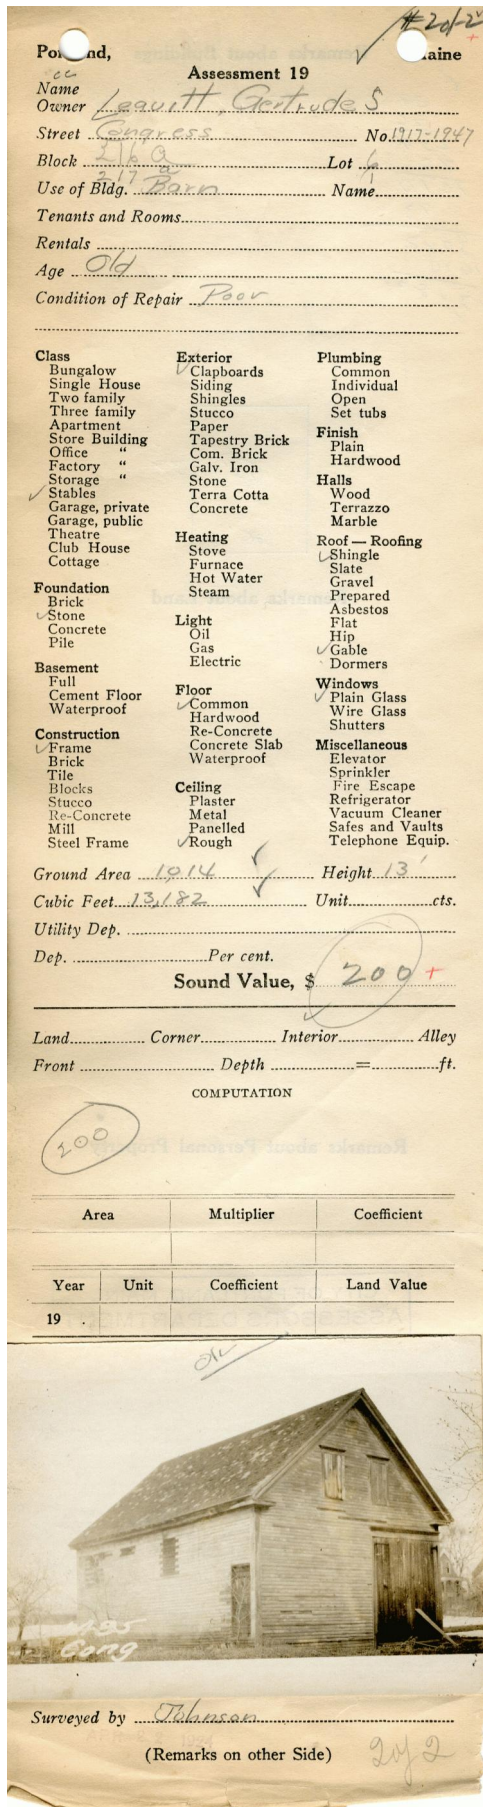 #201-2
Portland, Maine
Assessment 19
cc
Name
Owner Leavitt, Gertrude S
Street Congress No. 1917-1947
Block 216 a Lot 6
217 a
Use of Bldg. Barn Name
Tenants and Rooms
Rentals
Age Old
Condition of Repair Poor
Class
Bungalow
Single House
Two family
Three family
Apartment
Store Building
Office "
Factory "
Storage "
✓ Stables
Garage, private
Garage, public
Theatre
Club House
Cottage
Foundation
Brick
✓ Stone
Concrete
Pile
Basement
Full
Cement Floor
Waterproof
Construction
✓ Frame
Brick
Tile
Blocks
Stucco
Re-Concrete
Mill
Steel Frame
Exterior
✓ Clapboards
Siding
Shingles
Stucco
Paper
Tapestry Brick
Com. Brick
Galv. Iron
Stone
Terra Cotta
Concrete
Heating
Stove
Furnace
Hot Water
Steam
Light
Oil
Gas
Electric
Floor
✓ Common
Hardwood
Re-Concrete
Concrete Slab
Waterproof
Ceiling
Plaster
Metal
Panelled
✓ Rough
Plumbing
Common
Individual
Open
Set tubs
Finish
Plain
Hardwood
Halls
Wood
Terrazzo
Marble
Roof — Roofing
✓ Shingle
Slate
Gravel
Prepared
Asbestos
Flat
Hip
✓ Gable
Dormers
Windows
✓ Plain Glass
Wire Glass
Shutters
Miscellaneous
Elevator
Sprinkler
Fire Escape
Refrigerator
Vacuum Cleaner
Safes and Vaults
Telephone Equip.
Ground Area 1014 ✓ Height 13'
Cubic Feet 13,182 ✓ Unit cts.
Utility Dep.
Dep. Per cent.
Sound Value, $ 200 +
Land Corner Interior Alley
Front Depth = ft.
COMPUTATION
200
Area Multiplier Coefficient
Year Unit Coefficient Land Value
19
OK
A-95
Cong
Surveyed by Johnson
(Remarks on other Side)
2 of 2